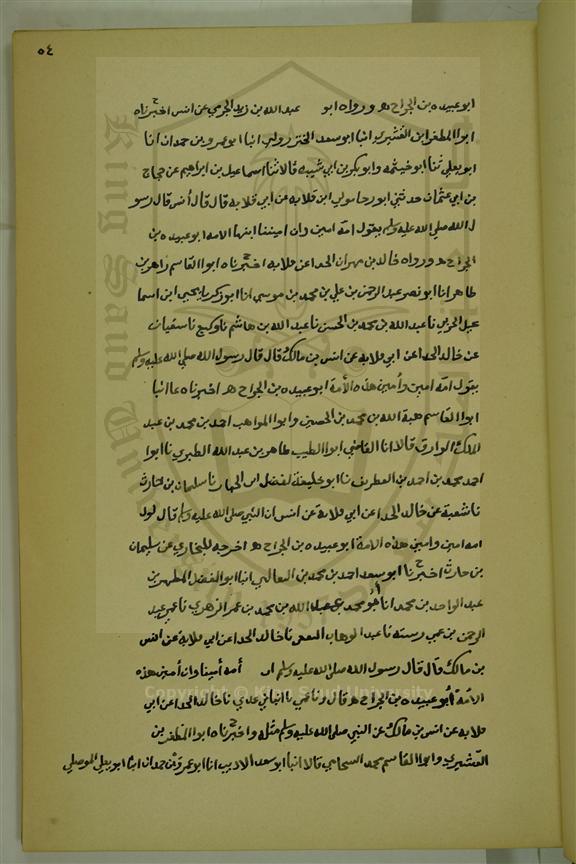 ٥٤
ابو عبيده بن الجراح هـ ورواه ابو عبد الله بن زيد الجرمي عن انس اخبرناه
ابوا المظفر ابن القشيري انبا ابو سعد انبا ابو عمرو بن حمدان انا
ابو يعلي ثنا ابو خيثمه وابو بكر بن ابي شيبه قالا ثنا اسماعيل بن ابراهيم عن حجاج
بن ابي عثمان حدثني ابو رجا مولي ابن قلابه عن ابي قلابه قال قال أنس قال رسو
ل الله صلي الله عليه وسلم يقول امة امين وان اميننا ايتها الامه ابو عبيده بن
الجراح هـ ورواه خالد بن مهران الحذا عن قلابه اخبرناه ابوا القاسم زاهر بن
طاهر انا ابو نصر عبد الرحمن بن علي بن محمد بن موسي انا ابو زكريا يحيي ابن اسما
عيل الحربي نا عبد الله بن محمد بن الحسن نا عبد الله بن هاشم نا وكيع نا سفيان
عن خالد الحذا عن ابي قلابه عن انس بن مالك قال قال رسول الله صلي الله عليه وسلم
يقول امة امين وأمين هذه الأمة ابو عبيده بن الجراح هـ اخبرناه انبا
ابوا القاسم هبة الله بن محمد بن الحصين وابوا المواهب احمد بن محمد بن عبد
الملك الوارق قالا انا القاضي ابوا الطيب طاهر بن عبد الله الطبري نا ابوا
احمد محمد بن احمد بن الغطريف نا ابو خليفة لفضل بن الحباب نا سليمان بن حارث
نا شعبة عن خالد الحذا عن ابي قلابة عن انس ان النبي صلي الله عليه وسلم قال
امه امين وامين هذه الامة ابو عبيده بن الجراح هـ اخرجه للبخاري عن سليمان
بن حارث اخبرنا ابو سعد احمد بن محمد بن البغدادي انبا ابو الفضل المطهر بن
عبد الواحد بن محمد انا ابو محمد عبد الله بن محمد بن عمر الزهري نا عمي عبد
الرحمن بن عمي رسته نا عبد الوهاب الثقفي نا خالد الحذا عن ابي قلابه عن انس
بن مالك قال قال رسول الله صلي الله عليه وسلم ان أمه أمينا وان أمين هذه
الأمة أبو عبيده بن الجراح هـ قال ونا عمي نا ابن ابي عدي نا خالد الحذا عن ابي
قلابه عن انس بن مالك عن النبي صلي الله عليه وسلم مثله واخبرناه ابوا المظفر بن
القشيري وابوا القاسم محمد قالا انبا ابو سعد الاديب انا ابو عمرو بن حمدان انبا ابو يعلي الموصلي
King Saud University
1957
Copyright © King Saud University